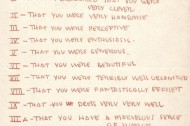 THAT YOU WERE
VERY CLEVER
II - THAT YOU WERE VERY HANDSOME
III - THAT YOU WERE PERCEPTIVE
IV - THAT YOU WERE ENTHUSIASTIC
V - THAT YOU WERE GENEROUS.
VI - THAT YOU WERE BEAUTIFUL
VII - THAT YOU WERE TERRIBLY WELL ORGANISED
VIII - THAT YOU WERE FANTASTICALLY EFFICIENT
IX - THAT YOU DRESS VERY VERY WELL
X - THAT YOU HAVE A MARVELOUS SENSE